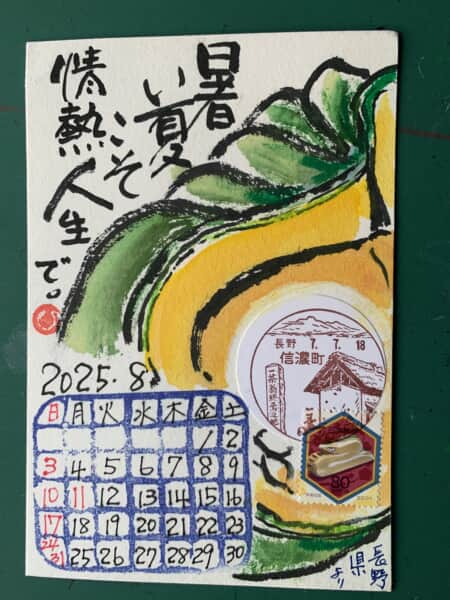 暑
い夏
こそ
情熱
人生
で。
2025.8
日 月 火 水 木 金 土
1 2
3 4 5 6 7 8 9
10 11 12 13 14 15 16
17 18 19 20 21 22 23
24/31 25 26 27 28 29 30
長野 7.7.18
信濃町
80
長野
県
より